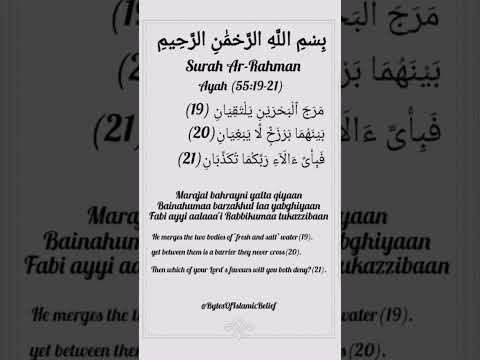 بِسْمِ اللَّهِ الرَّحْمَٰنِ الرَّحِيمِ
Surah Ar-Rahman
Ayah (55:19-21)
مَرَجَ ٱلْبَحْرَيْنِ يَلْتَقِيَانِ (19)
بَيْنَهُمَا بَرْزَخٌ لَّا يَبْغِيَانِ (20)
فَبِأَىِّ ءَالَآءِ رَبِّكُمَا تُكَذِّبَانِ (21)
Marajal bahrayni yalta qiyaan
Bainahumaa barzakhul laa yabghiyaan
Fabi ayyi aalaaa'i Rabbikumaa tukazzibaan
He merges the two bodies of ˹fresh and salt˺ water(19).
yet between them is a barrier they never cross(20).
Then which of your Lord's favours will you both deny?(21).
@BytesOfIslamicBelief